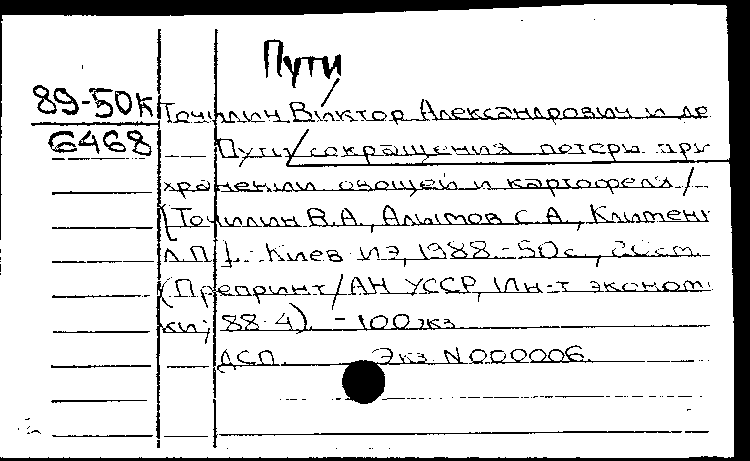 Пути
89-50К Точилин Виктор Александрович и др
6468 Пути сокращения потерь при
хранении овощей и картофеля /
[Точилин В.А., Алымов С.А., Климен
Л.П.]. - Киев ИЭ, 1988.-50с., 20см.
(Препринт/АН УССР, Ин-т эконом
ки; 88-4). - 100экз
ДСП. Экз N000006.